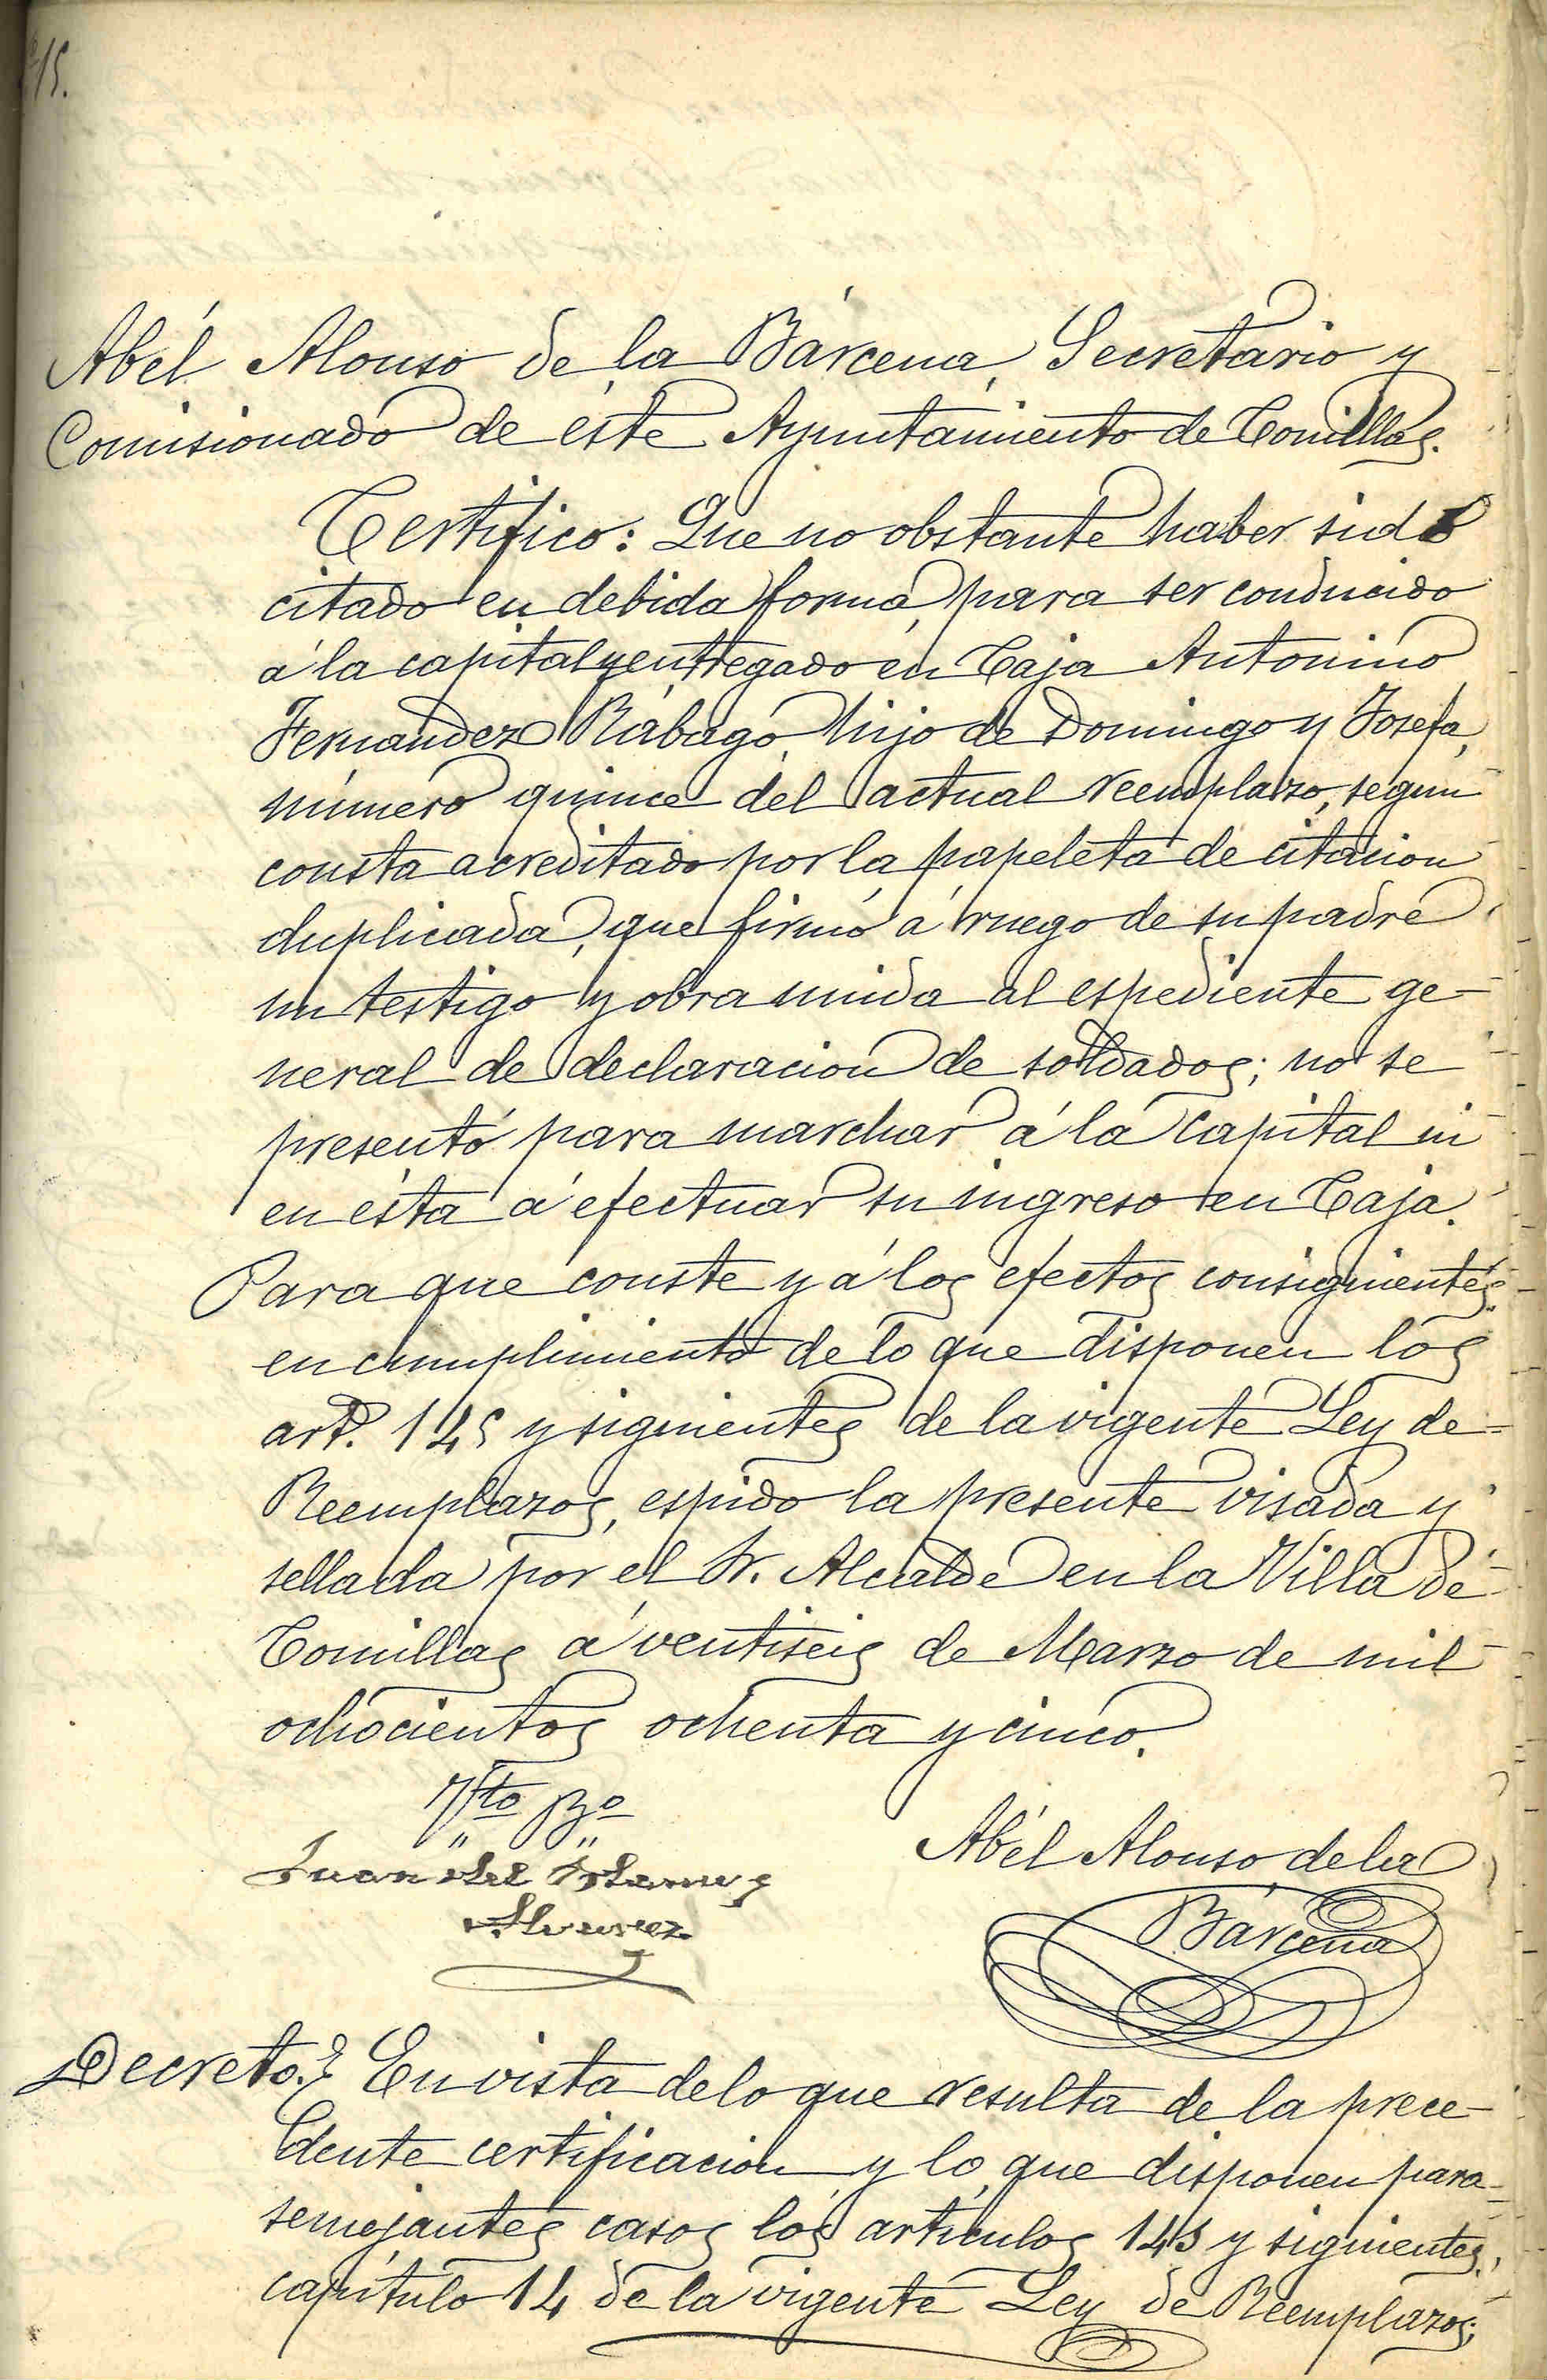 15.
Abél Alonso de la Bárcena, Secretario y
Comisionado de éste Ayuntamiento de Comillas.
Certifico: Que no obstante haber sido
citado en debida forma, para ser conducido
á la capital y entregado en Caja Antonino
Fernandez Rábago, hijo de Domingo y Josefa,
número quince del actual reemplazo, segun
consta acreditado por la papeleta de citacion
duplicada, que firmó á ruego de su padre
un testigo y obra unida al espediente ge-
neral de declaracion de soldados; no se
presentó para marchar á la capital ni
en ésta á efectuar su ingreso en Caja.
Para que conste y á los efectos consiguientes,
en cumplimiento de lo que disponen los
art.s 145 y siguientes de la vigente Ley de
Reemplazos, espido la presente visada y
sellada por el Sr. Alcalde en la Villa de
Comillas á ventiseis de Marzo de mil
ochocientos ochenta y cinco.
Vto Bo
Juan del
Abél Alonso de la
Bárcena
Decreto. En vista de lo que resulta de la prece-
dente certificacion y lo que disponen para
semejantes casos los artículos 145 y siguientes,
capítulo 14 de la vigente Ley de Reemplazos;